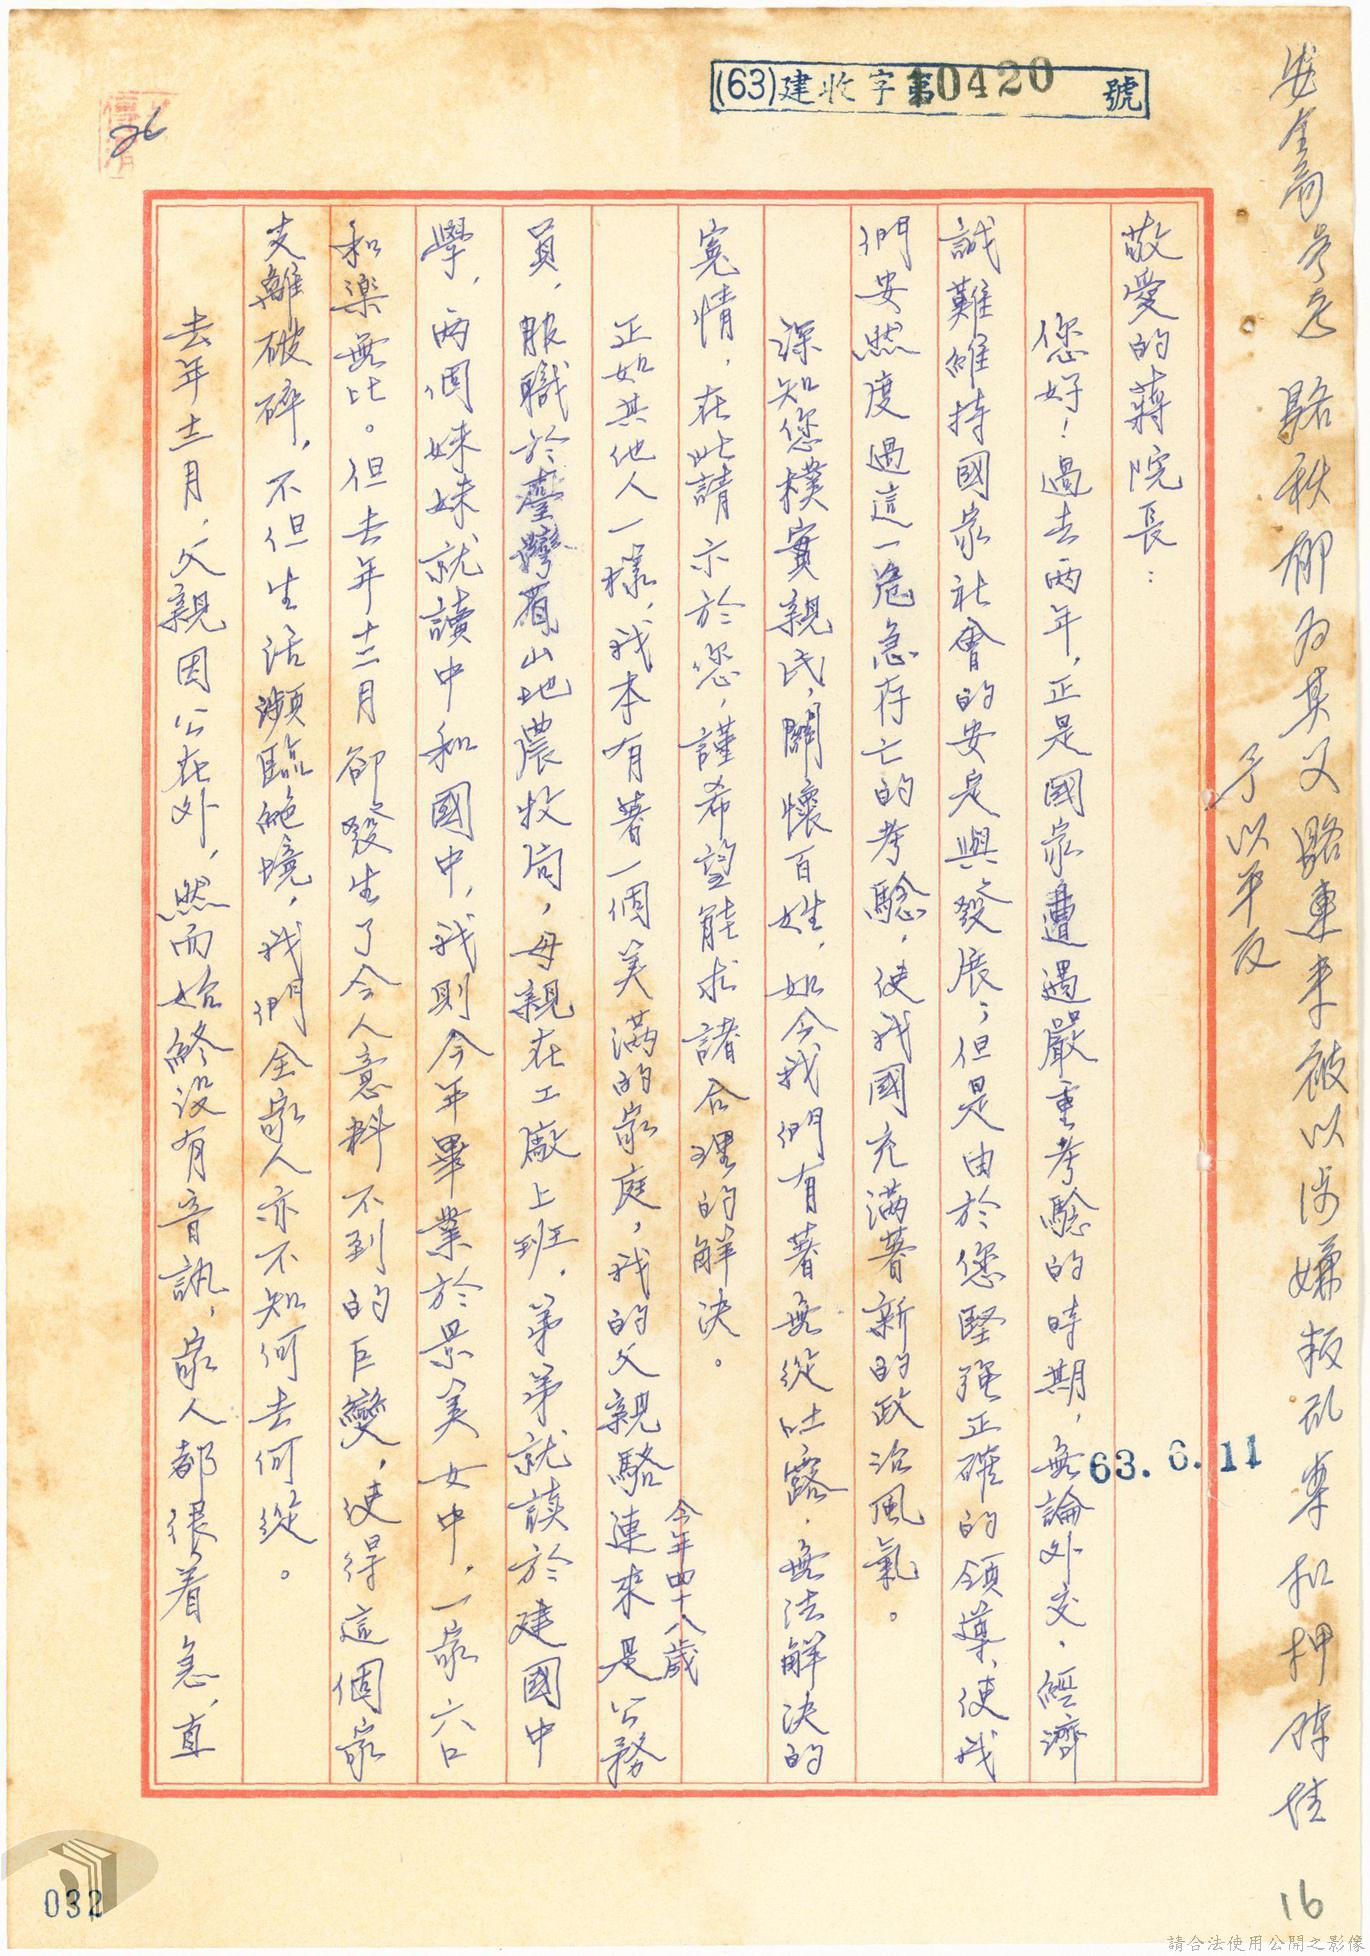 (63)建收字第10420號
敬愛的蔣院長：
您好！過去兩年，正是國家遭遇嚴重考驗的時期，無論外交．經濟
誠難維持國家社會的安定與發展；但是由於您堅強正確的領導，使我
們安然度過這一危急存亡的考驗，使我國充滿著新的政治風氣。
深知您樸實親民，關懷百姓，如今我們有著無從吐露．無法解決的
冤情，在此請示於您，謹希望能求諸合理的解決。
正如其他人一樣，我本有著一個美滿的家庭，我的父親駱連來是公務
今年四十八歲
員，服職於臺灣省山地農牧局，母親在工廠上班．弟弟就讀於建國中
學，兩個妹妹就讀中和國中，我則今年畢業於景美女中，一家六口
和樂無比。但去年十二月卻發生了令人意料不到的巨變，使得這個家
支離破碎，不但生活瀕臨絕境，我們全家人亦不知何去何從。
去年十二月，父親因公在外，然而始終沒有音訊，家人都很着急，直
駱秋郁為其父駱連來被以涉嫌叛亂案扣押陳情
予以平反
63.6.11
26
032
16
請合法使用公開之影像